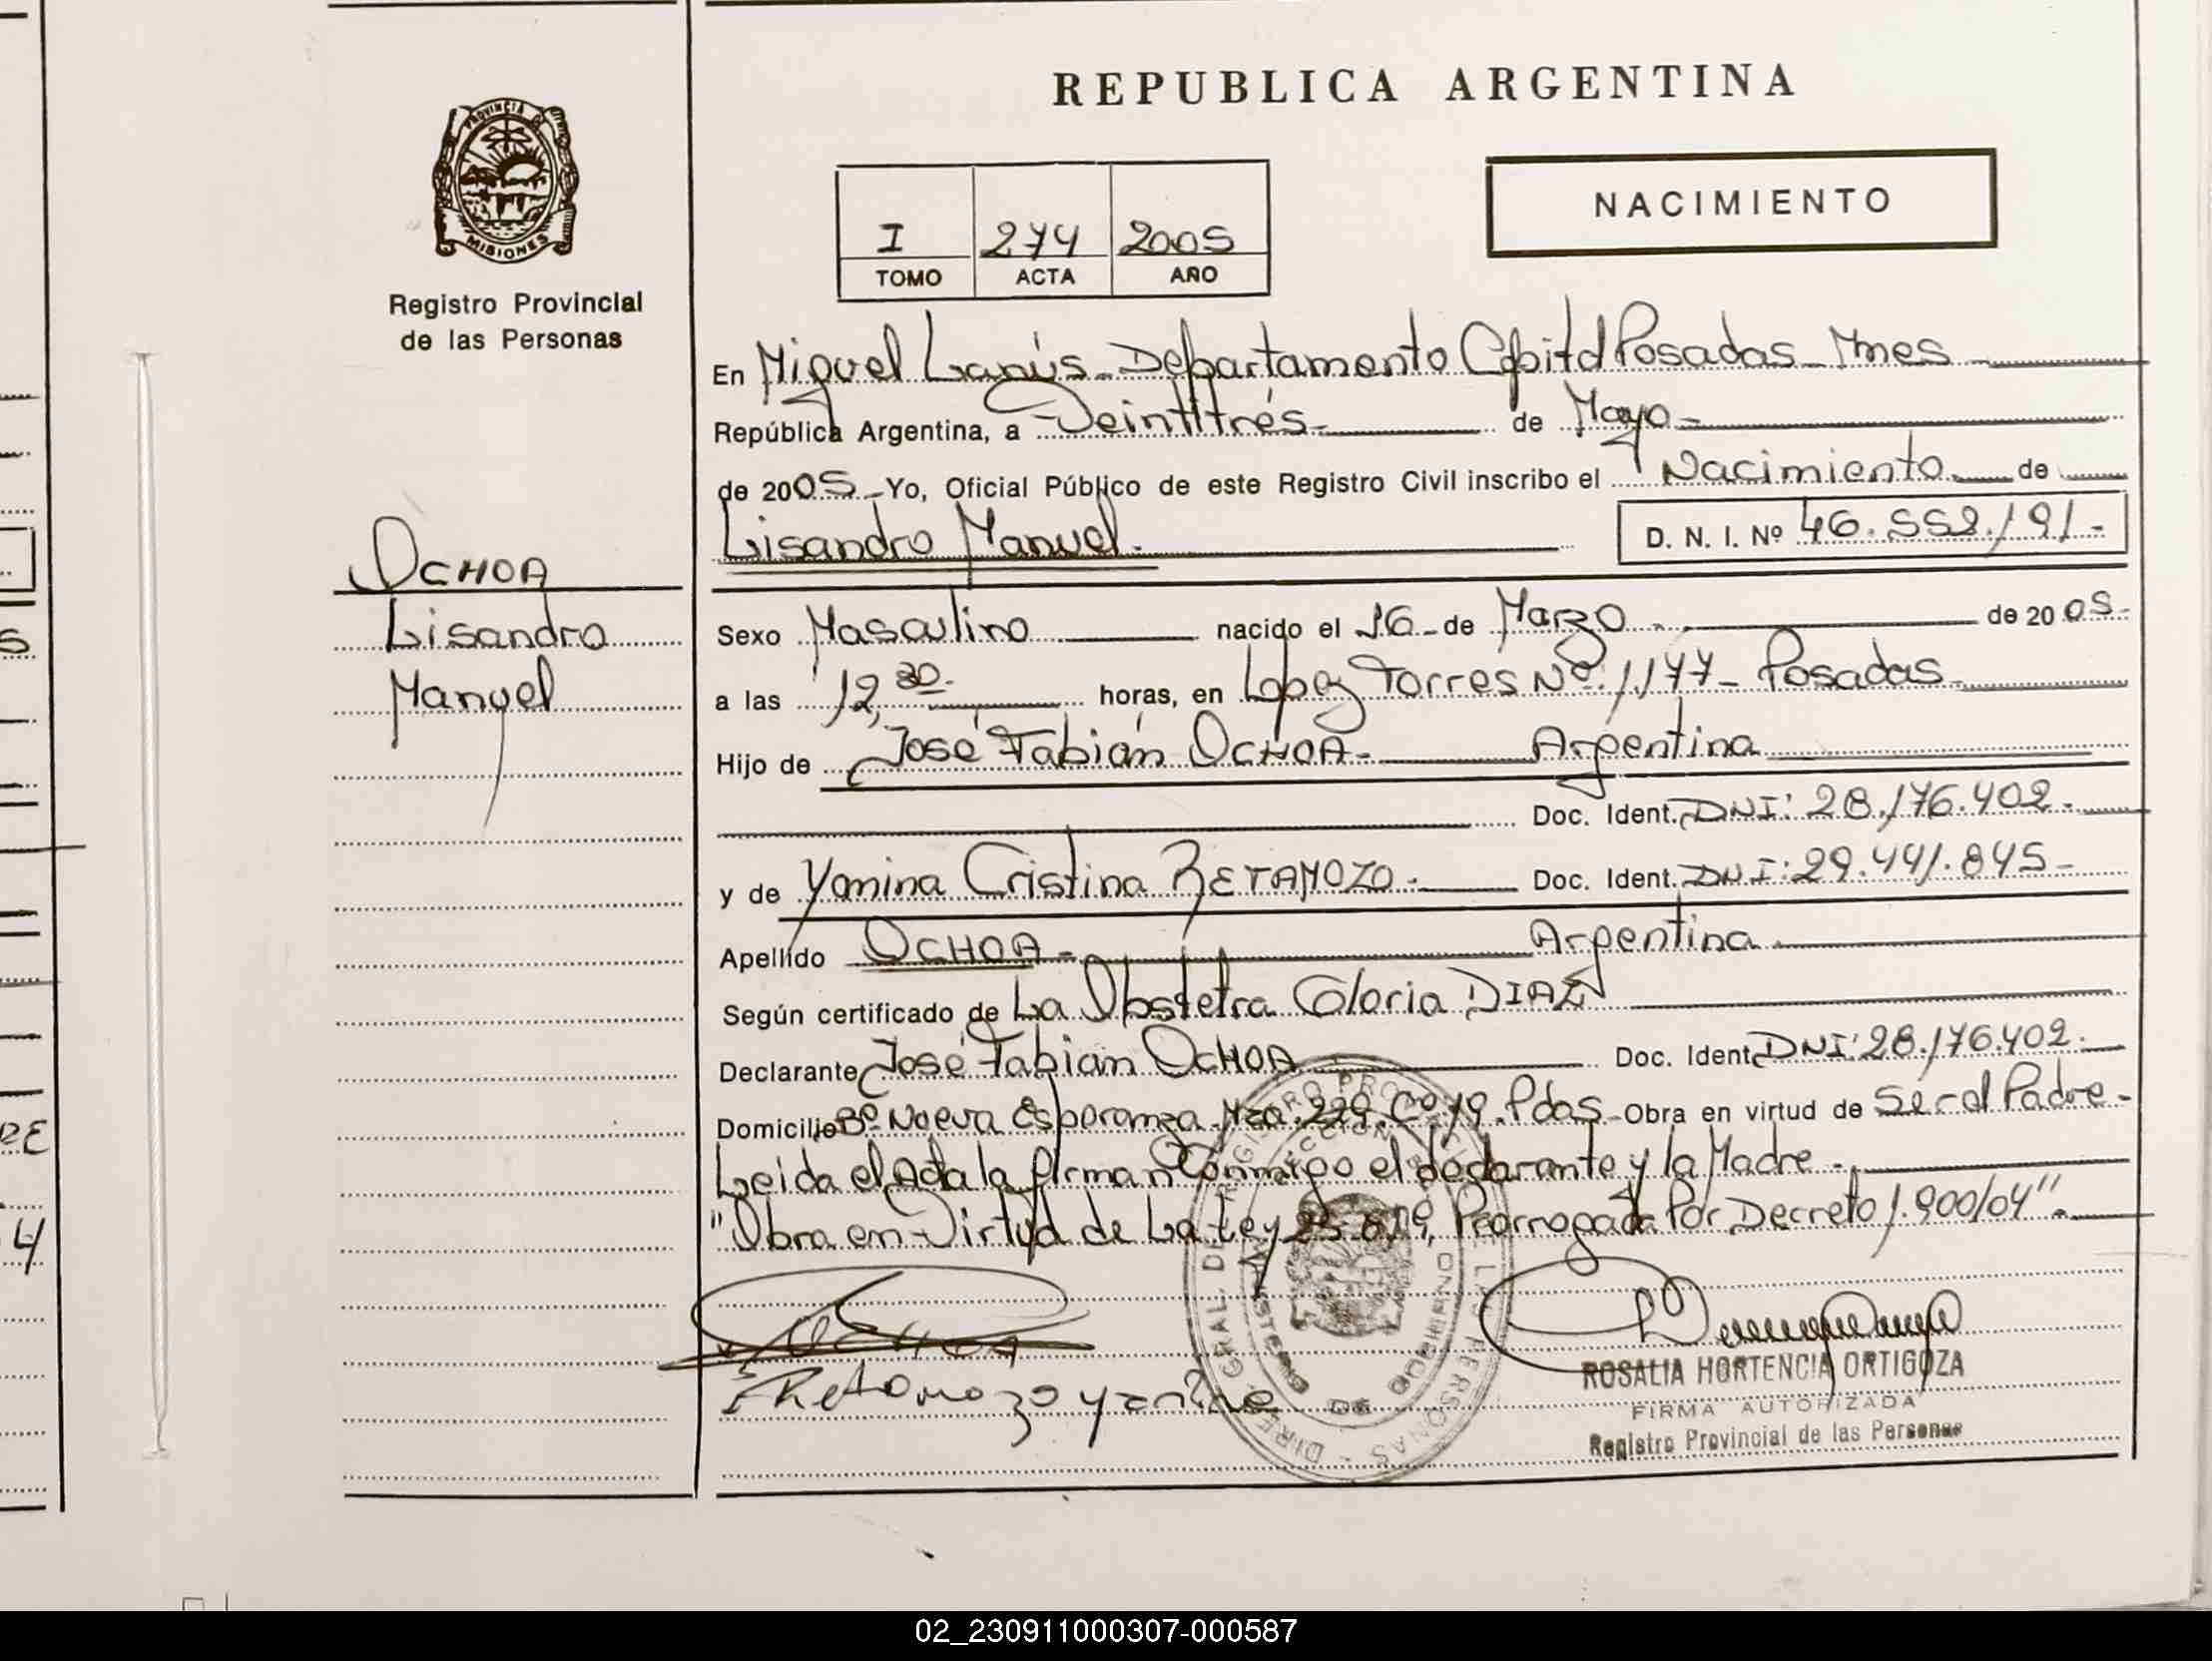 REPUBLICA ARGENTINA
PROVINCIA DE MISIONES
Registro Provincial
de las Personas
NACIMIENTO
I 274 2005
TOMO ACTA AÑO
En Miguel Lanús - Departamento Capital Posadas - Mnes
República Argentina, a Veintitrés - de Mayo -
de 2005 - Yo, Oficial Público de este Registro Civil inscribo el Nacimiento de
Lisandro Manuel - D. N. I. Nº 46.552.191 -
OCHOA
Lisandro
Manuel
Sexo Masculino nacido el 16 - de Marzo - de 2005 -
a las 12,30 - horas, en Lopez Torres Nº 1177 - Posadas -
Hijo de José Fabián OCHOA - Argentina
Doc. Ident. DNI: 28.176.402 -
y de Yamina Cristina RETAMOZO - Doc. Ident. DNI: 29.441.845 -
Apellido OCHOA - Argentina
Según certificado de La Obstetra Gloria DIAZ
Declarante José Fabián OCHOA Doc. Ident. DNI 28.176.402 -
Domicilio Bº Nueva Esperanza Mza. 229, Cº 19. Pdas - Obra en virtud de Ser el Padre -
Leida el Acta la firman Conmigo el declarante y la Madre -
"Obra en Virtud de La Ley 25.819, Prorrogada Por Decreto 1.900/04" -
OCHOA
Retamozo yanina
ROSALIA HORTENCIA ORTIGOZA
FIRMA AUTORIZADA
Registro Provincial de las Personas
02_230911000307-000587